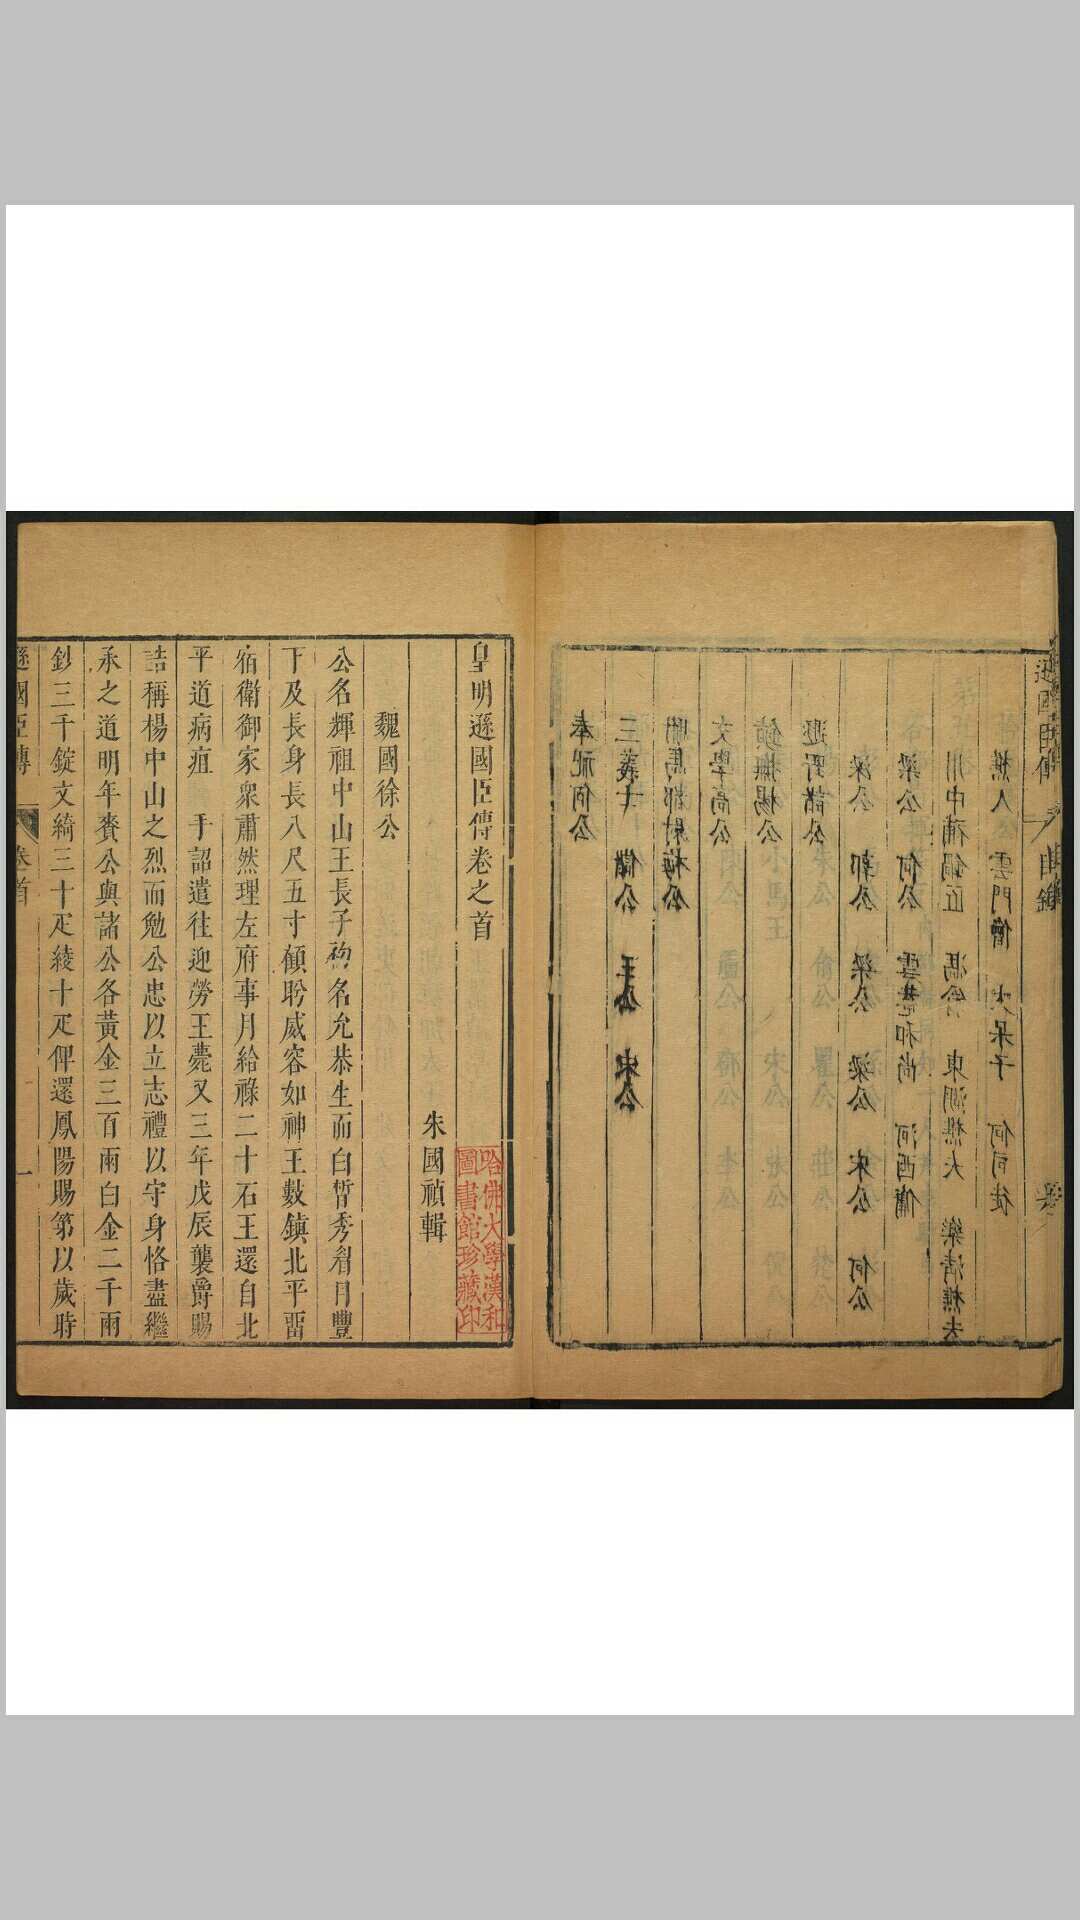 樵人 雲門僧 大呆子 何司徒
川中補鍋匠 馮公 東湖樵夫 樂清樵夫
梁公 何公 和尚 河西傭
郭公 梁公 梁公 宋公 何公
野諸公
鎮撫楊公
文學高公
馬都尉梅公
三義士 儲公 王公 宋公
奉祀何公
皇明遜國臣傳卷之首
朱國禎輯
魏國徐公
公名輝祖中山王長子初名允恭生而白皙秀眉目豐
下及長身長八尺五寸顧盻威容如神王數鎮北平畱
宿衛御家衆肅然理左府事月給祿二十石王還自北
平道病疽 手詔遣往迎勞王薨又三年戊辰襲爵賜
誥稱楊中山之烈而勉公忠以立志禮以守身恪盡繼
承之道明年賚公與諸公各黃金三百兩白金二千兩
鈔三千錠文綺三十疋綾十疋俾還鳳陽賜第以歲時
遜國臣傳 卷首 一
哈佛大學漢和
圖書館珍藏印